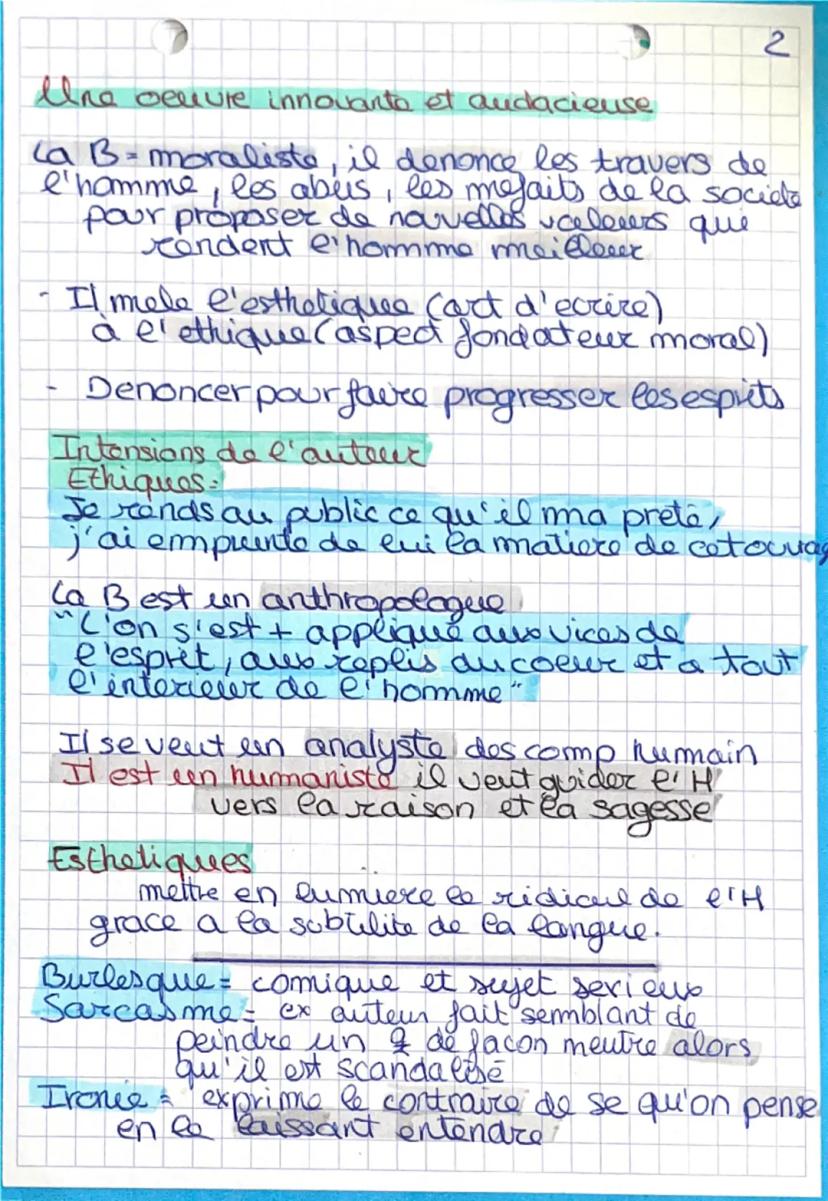 2
Une oeuvre innovante et audacieuse
La B = moraliste, il denonce les travers de
l'homme, les abus, les mefaits de la societe
pour proposer de nouvelles valeurs qui
rendent l'homme meilleur
- Il mele l'esthetique (art d'ecrire)
à l'ethique (aspect fondateur moral)
- Denoncer pour faire progresser les esprits
Intensions de l'auteur
Ethiques:
Je rends au public ce qu'il ma preté,
j'ai emprunte de lui la matiere de cet ouvrag
La B est un anthropologue
"L'on s'est + appliqué aux vices de
l'esprit, aux replis du coeur et a tout
l'interieur de l'homme"
Il se veut un analyste des comp humain
Il est un humaniste il veut guider l'H
vers la raison et la sagesse
Esthetiques
mettre en lumiere le ridicul de l'H
grace a la subtilite de la langue.
Burlesque = comique et sujet serieux
Sarcasme = ex auteur fait semblant de
peindre un de façon neutre alors
qu'il est scandalisé
Ironie = exprime le contraire de se qu'on pense
en le laissant entendre